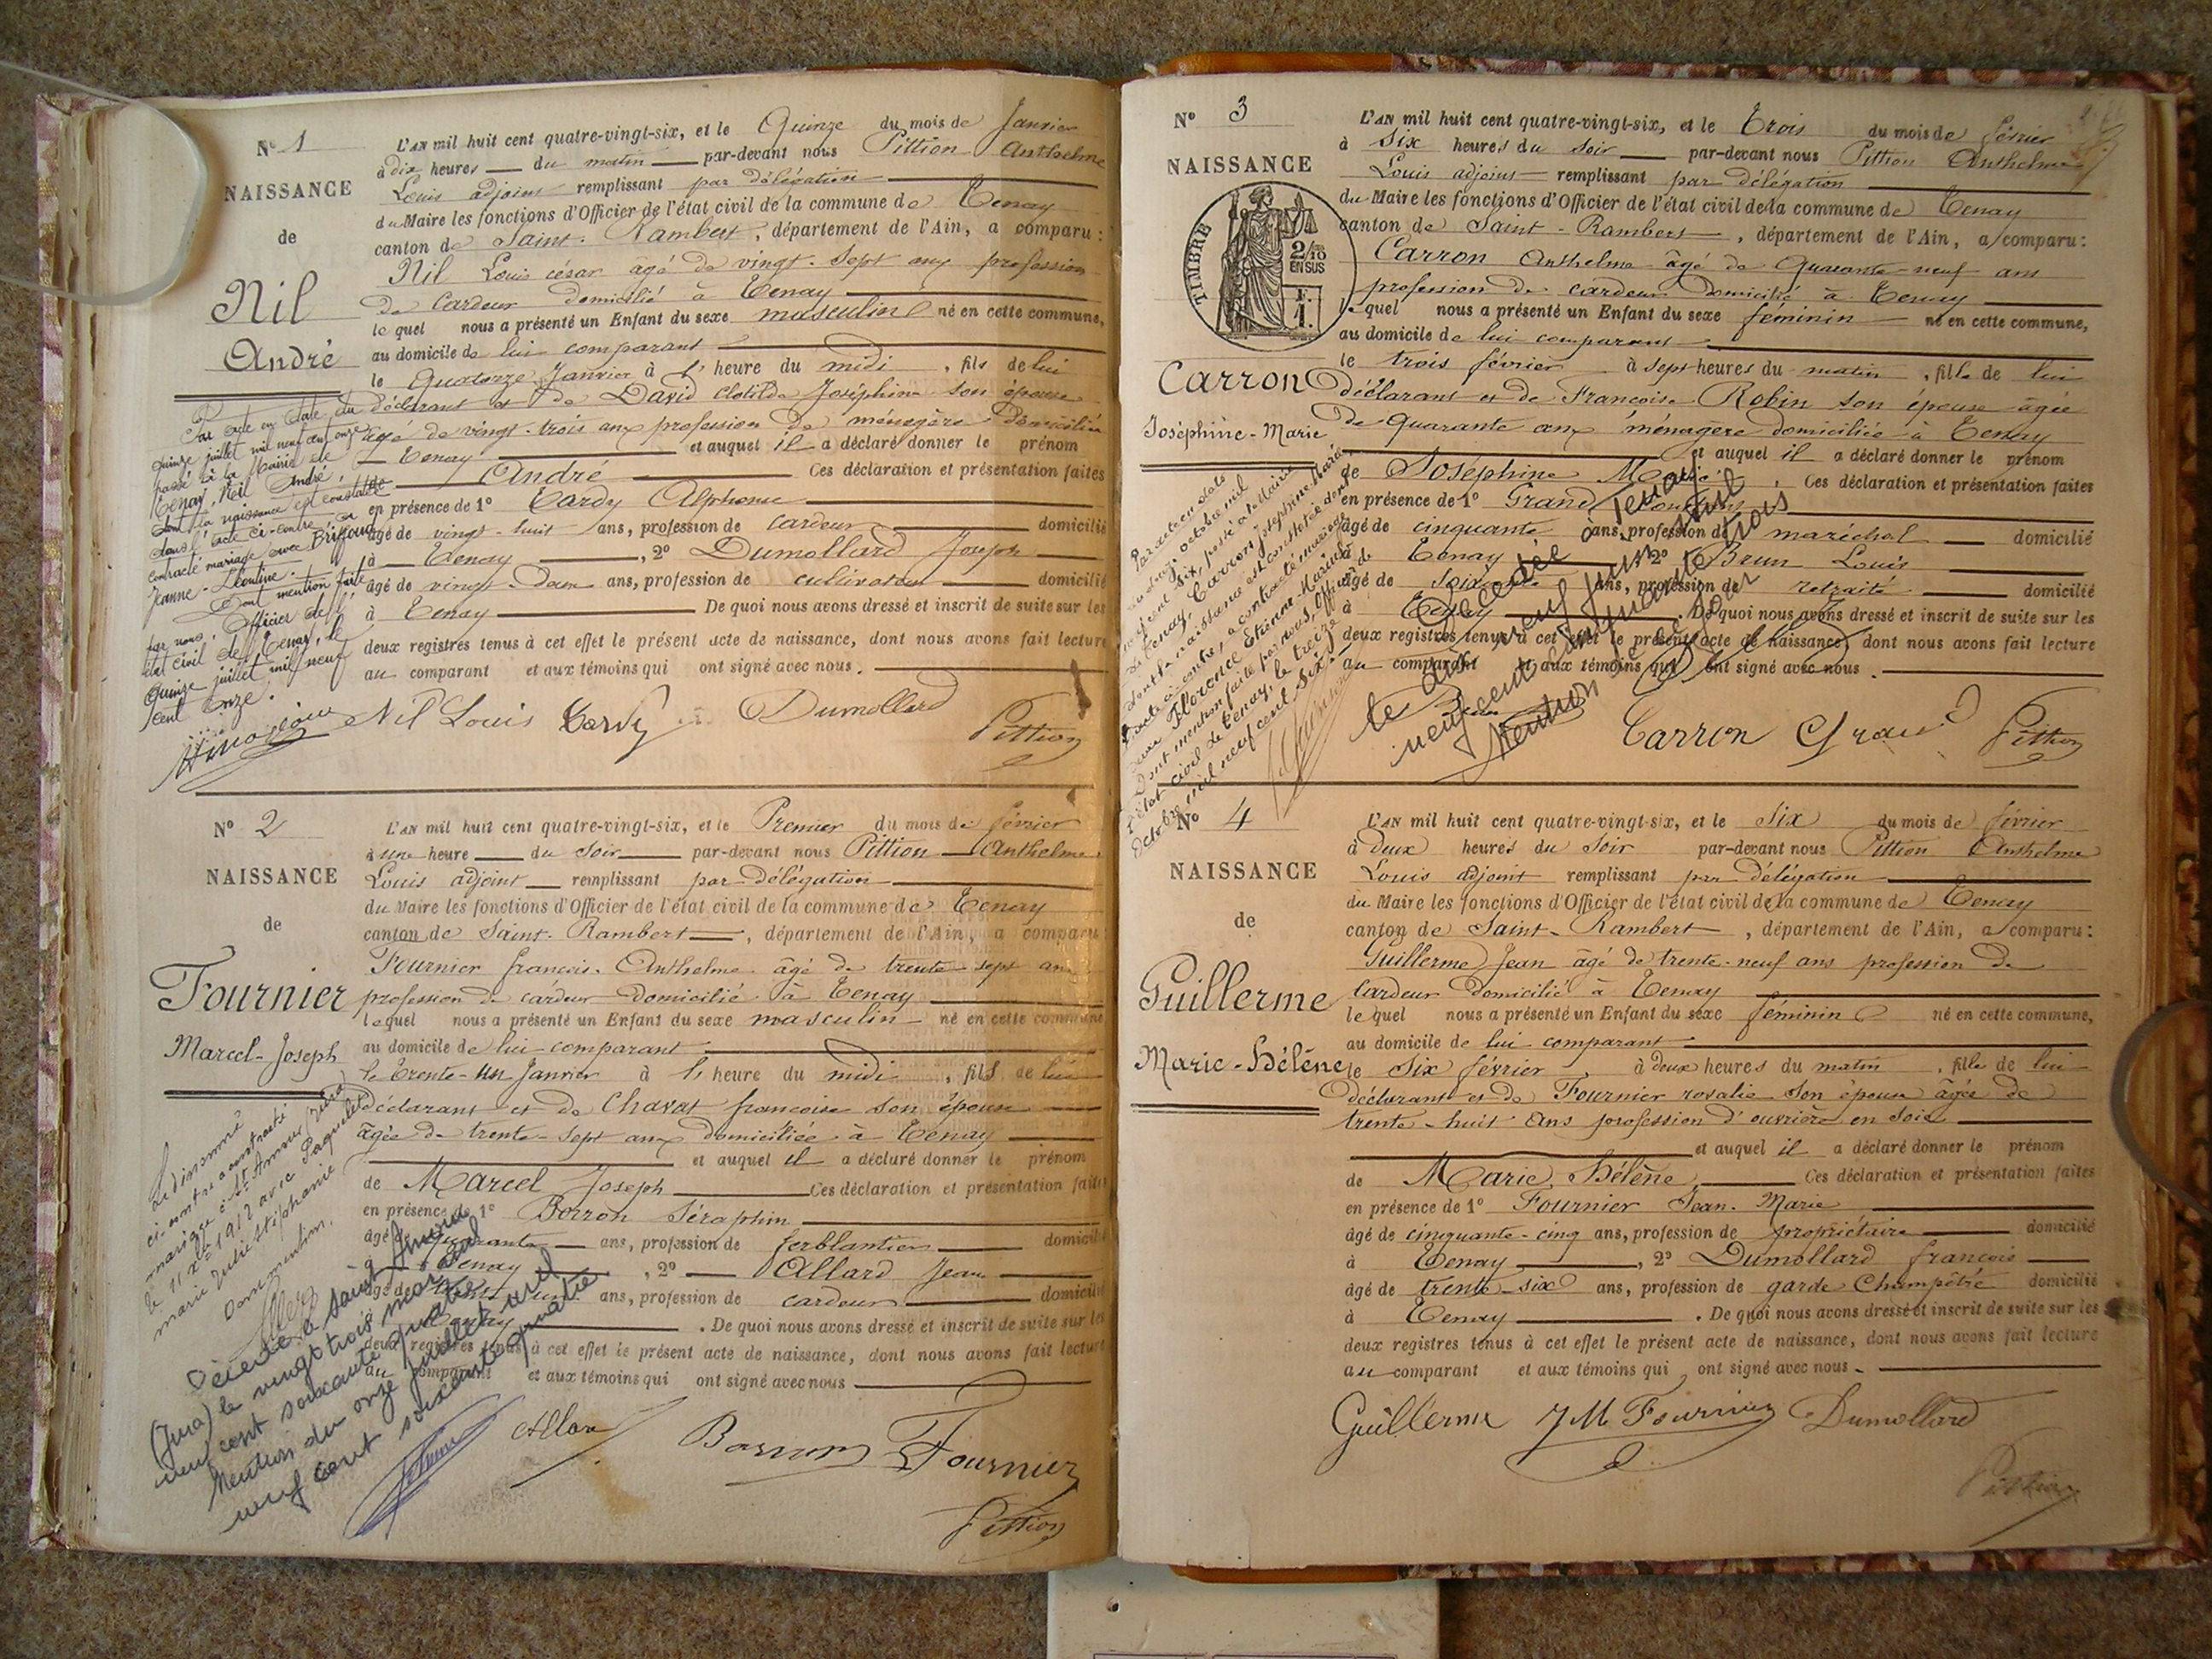 N° 1
NAISSANCE
de
Nil
André
L'AN mil huit cent quatre-vingt-six, et le Quinze du mois de Janvier
à dix heures du matin par-devant nous Pittion Anthelme
Louis adjoint remplissant par délégation
du Maire les fonctions d'Officier de l'état civil de la commune de Tenay
canton de Saint-Rambert, département de l'Ain, a comparu :
Nil Louis césar âgé de vingt-sept ans profession
de Cardeur domicilié à Tenay
lequel nous a présenté un Enfant du sexe masculin né en cette commune,
au domicile de lui comparant
le Quatorze Janvier à 1 heure du midi, fils de lui
déclarant et de David Clotilde Joséphine son épouse
âgé de vingt-trois ans profession de ménagère domiciliée
Tenay et auquel il a déclaré donner le prénom
André Ces déclaration et présentation faites
en présence de 1° Tardy Alphonse
âgé de vingt-huit ans, profession de cardeur domicilié
à Tenay, 2° Dumollard Joseph
âgé de vingt-deux ans, profession de cultivateur domicilié
à Tenay De quoi nous avons dressé et inscrit de suite sur les
deux registres tenus à cet effet le présent acte de naissance, dont nous avons fait lecture
au comparant et aux témoins qui ont signé avec nous.
Par acte en date du
quinze juillet mil neuf cent onze
passé à la Mairie de
Tenay, Nil André
dont la naissance est constatée
dans l'acte ci-contre a
contracté mariage avec
Jeanne-Léontine.
Dont mention faite
par nous, Officier de l'
état civil de Tenay, le
quinze juillet mil neuf
cent onze.
Nil Louis Tardy Dumollard
Pittion
N° 2
NAISSANCE
de
Fournier
Marcel-Joseph
L'AN mil huit cent quatre-vingt-six, et le Premier du mois de février
à une heure du soir par-devant nous Pittion Anthelme
Louis adjoint remplissant par délégation
du Maire les fonctions d'Officier de l'état civil de la commune de Tenay
canton de Saint-Rambert, département de l'Ain, a comparu
Fournier françois-Anthelme âgé de trente-sept ans
profession de cardeur domicilié à Tenay
lequel nous a présenté un Enfant du sexe masculin né en cette commune
au domicile de lui comparant
le trente-un Janvier à 1 heure du midi, fils de lui
déclarant et de Chavat françoise son épouse
âgée de trente-sept ans domiciliée à Tenay
et auquel il a déclaré donner le prénom
de Marcel Joseph Ces déclaration et présentation faites
en présence de 1° Borron Séraphin
âgé de quarante ans, profession de ferblantier domicilié
à Tenay, 2° Allard Jean
âgé de ans, profession de cardeur domicilié
à Tenay. De quoi nous avons dressé et inscrit de suite sur les
deux registres tenus à cet effet le présent acte de naissance, dont nous avons fait lecture
au comparant et aux témoins qui ont signé avec nous
Le dénommé
ci-contre a contracté
mariage à St Amour (Jura)
le 11 Xbre 1912 avec Paquelet
marie Julie Stéphanie
Dont mention.
Décédé à Saint Amour
(Jura) le vingt trois mars mil
neuf cent soixante quatre
Mention du onze juillet mil
neuf cent soixante quatre
Allard Borron Fournier
Pittion
N° 3
NAISSANCE
TIMBRE
2/10
EN SUS
F.
1.
Carron
Joséphine-Marie
L'AN mil huit cent quatre-vingt-six, et le trois du mois de février
à six heures du soir par-devant nous Pittion Anthelme
Louis adjoint remplissant par délégation
du Maire les fonctions d'Officier de l'état civil de la commune de Tenay
canton de Saint-Rambert, département de l'Ain, a comparu :
Carron Anthelme âgé de Quarante-neuf ans
profession de cardeur domicilié à Tenay
lequel nous a présenté un Enfant du sexe féminin né en cette commune,
au domicile de lui comparant
le trois février à sept heures du matin, fille de lui
déclarant et de Françoise Robin son épouse âgée
de Quarante ans ménagère domiciliée à Tenay
et auquel il a déclaré donner le prénom
de Joséphine Marie. Ces déclaration et présentation faites
en présence de 1° Grand
âgé de cinquante ans, profession de maréchal domicilié
à Tenay 2° Brun Louis
âgé de ans, profession de retraité domicilié
à Tenay. De quoi nous avons dressé et inscrit de suite sur les
deux registres tenus à cet effet le présent acte de naissance, dont nous avons fait lecture
au comparant et aux témoins qui ont signé avec nous.
Par acte en date
du treize octobre mil
neuf cent six, passé à la Mairie
de Tenay, Carron Joséphine Marie
dont la naissance est constatée dans
l'acte ci-contre, a contracté mariage
avec Florence Etienne-Marius
Dont mention faite par nous, Officier de
l'état civil de Tenay, le treize
Octobre mil neuf cent six.
Décédée à Tenay
le dix neuf juin mil
neuf cent cinquante trois
Mention
Carron Grand Pittion
N° 4
NAISSANCE
de
Guillerme
Marie-Hélène
L'AN mil huit cent quatre-vingt-six, et le six du mois de février
à deux heures du soir par-devant nous Pittion Anthelme
Louis adjoint remplissant par délégation
du Maire les fonctions d'Officier de l'état civil de la commune de Tenay
canton de Saint-Rambert, département de l'Ain, a comparu :
Guillerme Jean âgé de trente-neuf ans profession de
Cardeur domicilié à Tenay
lequel nous a présenté un Enfant du sexe féminin né en cette commune,
au domicile de lui comparant
le six février, à deux heures du matin, fille de lui
déclarant et de Fournier rosalie son épouse âgée de
trente-huit ans profession d'ouvrière en soie
et auquel il a déclaré donner le prénom
de Marie, Hélène, Ces déclaration et présentation faites
en présence de 1° Fournier Jean-Marie
âgé de cinquante-cinq ans, profession de propriétaire domicilié
à Tenay, 2° Dumollard françois
âgé de trente-six ans, profession de garde Champêtre domicilié
à Tenay. De quoi nous avons dressé et inscrit de suite sur les
deux registres tenus à cet effet le présent acte de naissance, dont nous avons fait lecture
au comparant et aux témoins qui ont signé avec nous.
Guillerme J M Fournier Dumollard
Pittion